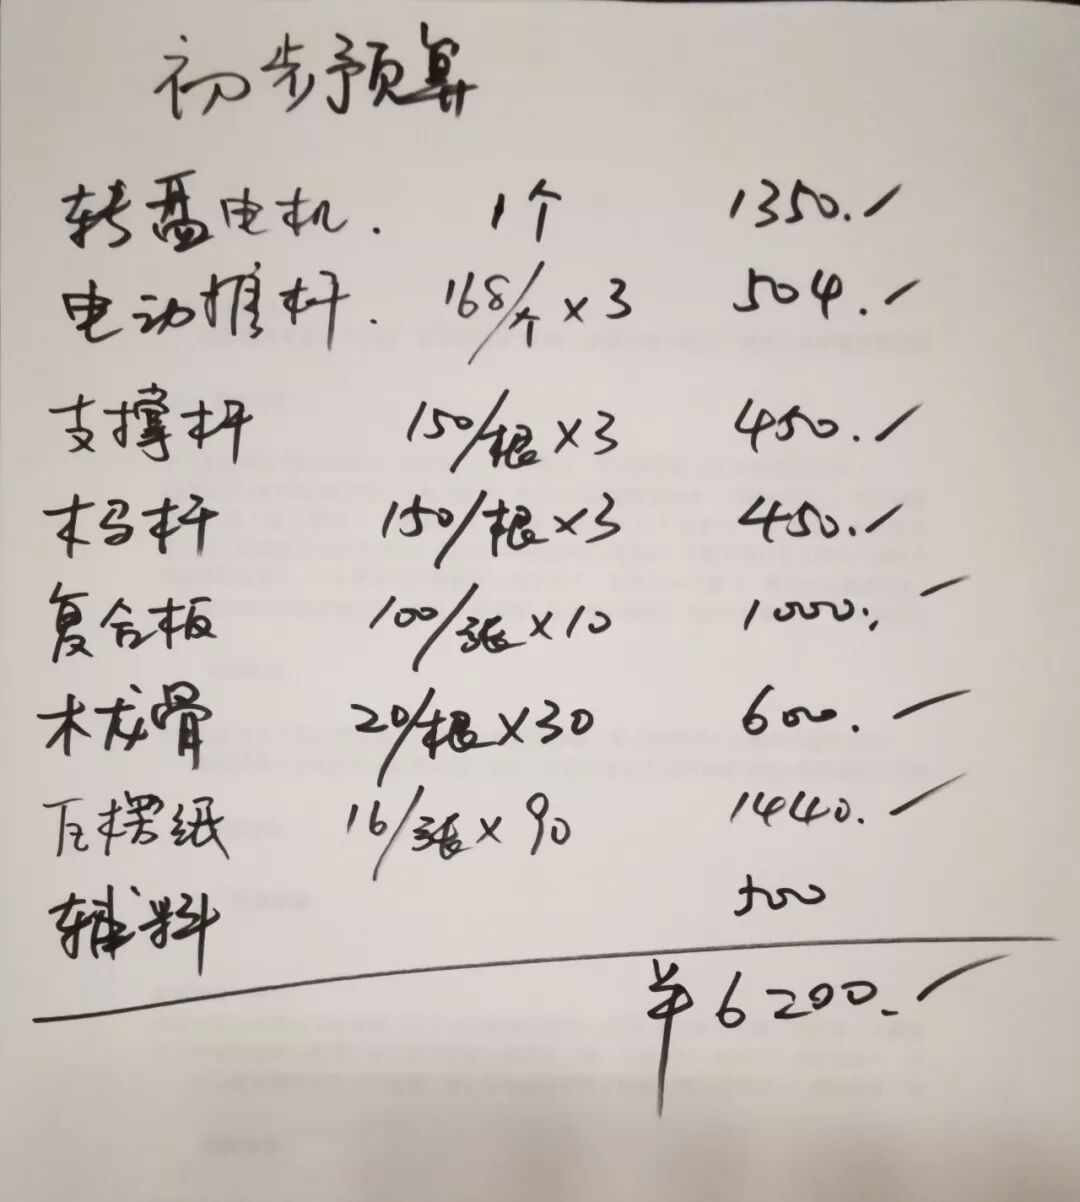 初步预算
转盘电机. 1个 1350.
电动推杆. 168/个×3 504.
支撑杆 150/根×3 450.
木马杆 150/根×3 450.
复合板 100/张×10 1000.
木龙骨 20/根×30 600.
瓦楞纸 16/张×90 1440.
辅料 500
¥6200.